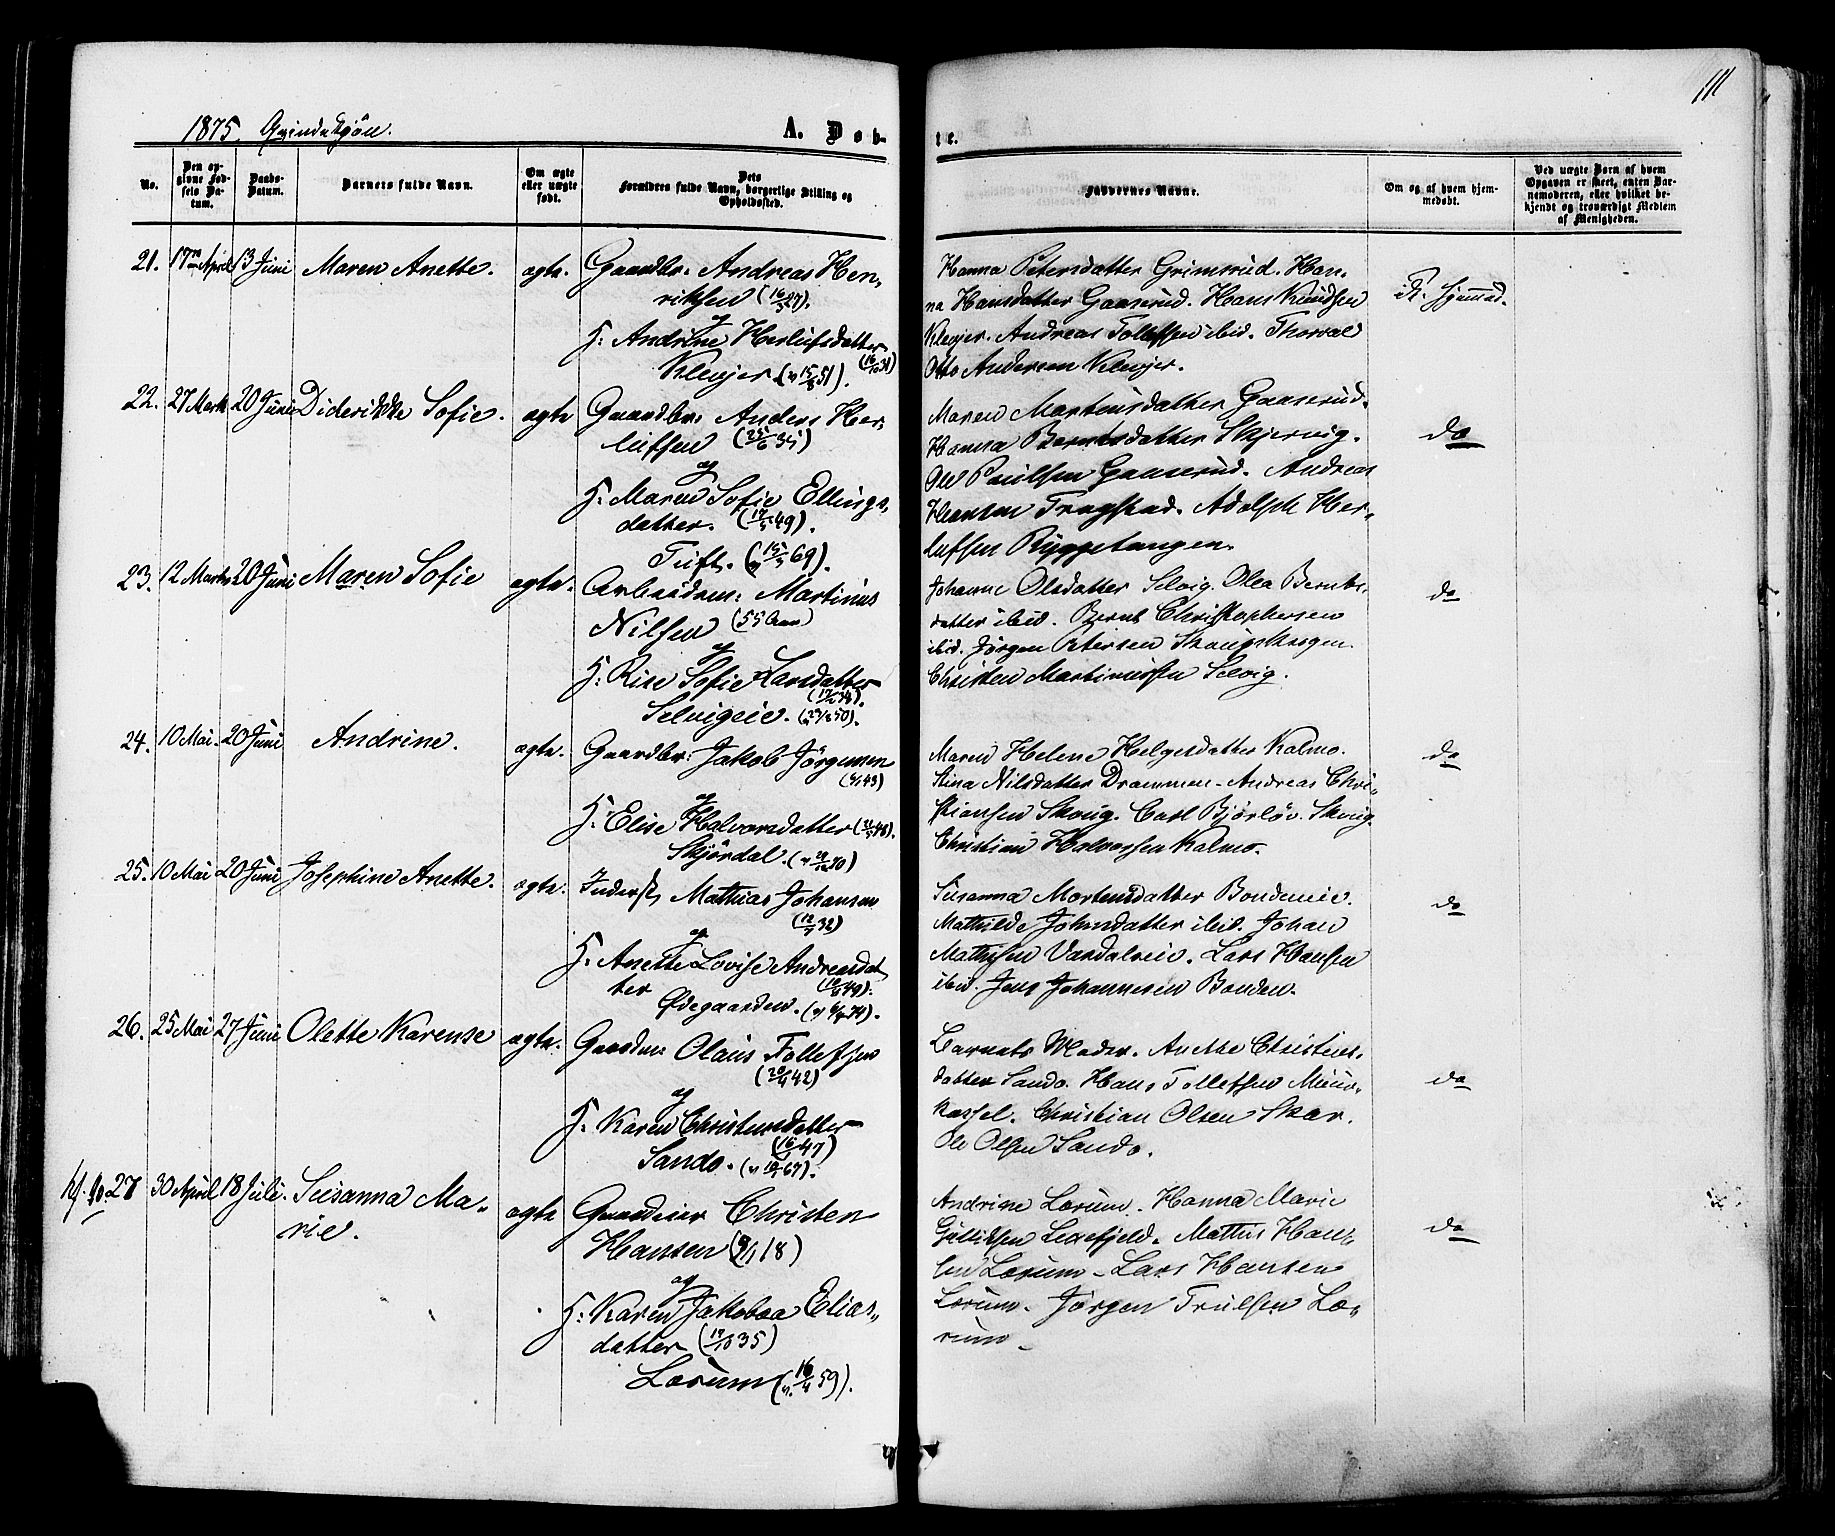 111
1875. Qvindekjön.
A. Døb-
te.
No.
Den opgivne Fødsels Datum.
Daabs-Datum.
Barnets fulde Navn.
Om ægte eller uægte født.
Dets Forældres fulde Navn, borgerlige Stilling og Opholdssted.
Faddernes Navne.
Om og af hvem hjemmedøbt.
Ved uægte Børn af hvem Opgaven er skeet, enten Barnemoderen, eller hvilket bekjendt og troværdigt Medlem af Menigheden.
21. 17 April 13 Juni Maren Anette. ægte. Gaardbr: Andreas Hen-
riksen (16/5 47).
og
H: Andrine Herlufsdatter
Klevjer. (n 15/8 51). (16/10 71)
Hanna Petersdatter Grimsrud. Han-
na Hansdatter Gaaserud. Hans Knudsen
Klevjer. Andreas Tollefsen ibid. Thorval
Otto Andersen Klevjer.
ik. hjemmed.
22. 27 Marts 20 Juni Diderikke Sofie. ægte Gaardbr: Anders Her-
lufsen (25/6 35)
og
H: Maren Sofie Ellings-
datter. (17/5 49).
Tuft. (n 15/5 69).
Maren Martinsdatter Gaaserud.
Hanna Berntsdatter Skjervig.
Ole Paulsen Gaaserud. Andreas
Hansen Trogstad. Adolph Her-
lufsen Ryggetangen.
do
23. 12 Marts 20 Juni Maren Sofie ægte. Arbeidsm: Martinus
Nilsen (55 Aar)
og
H: Rise Sofie Larsdatter
Selvigeie. (n 29/8 50).
Johanne Olsdatter Selvig. Olea Bernts-
datter ibid. Bernt Christophersen
ibid. Jörgen Petersen Skougskogen.
Christen Martinussen Selvig.
do
24. 10 Mai. 20 Juni Andrine. ægte. Gaardbr: Jakob Jörgensen
og
H: Elise Halvorsdatter
Skjöndal.
Maren Helene Helgesdatter Kalmo.
Stina Nilsdatter Drammen. Andreas Chri-
stiansen Skoug. Carl Bjørløv Skoug.
Christian Halvorsen Kalmo.
do
25. 10 Mai 20 Juni Josephine Anette. ægte. Inderst, Mathias Johansen
(12/7 32)
og
H: Anette Lovise Andreasdat-
ter
Ødegaarden.
Susanna Mortensdatter Bondeneie.
Mathilde Johnsdatter ibid. Johan
Mathisen Vardalseie. Lars Hansen
ibid. Jens Johannesen Bonden.
do
26. 25 Mai 27 Juni Olette Karense ægte. Gaardm: Olaus Tollefsen
(20/4 42)
og
H: Karen Christensdatter
(16/1 47)
Sando.
Barnets Moder. Anette Christens-
datter Sando. Hans Tollefsen
Christian Olsen Skar.
Ole Olsen Sando.
do
27 30 April 18 Juli. Susanna Ma-
rie. ægte Gaardeier Christen
Hansen (9/1 18)
og
H: Karen Jakobæa Elias-
datter (17/10 35)
Lærum (n. 16/4 59).
Andrine Lærum. Hanna Marie
Gulliksen Lerefjeld. Mathis Han-
sen Lærum - Lars Hansen
Lærum. Jörgen Trulsen Læ-
rum.
do